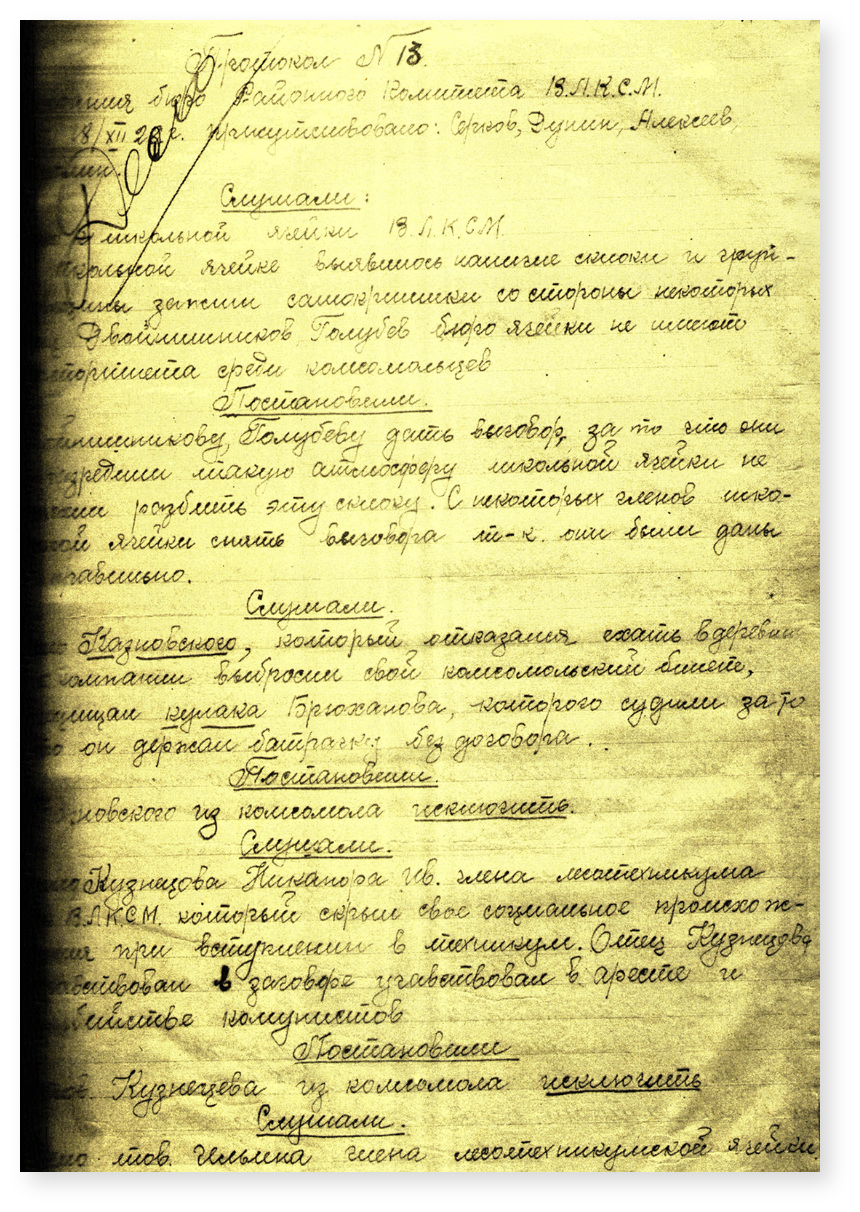 Протокол N 13.
бюро Районного Комитета В.Л.К.С.М.
18/XII г. присутствовало: Серков, Дунин, Алексеев,
Слушали:
О школьной ячейки В.Л.К.С.М.
школьной ячейке выявилось наличие склоки и груп-
зажим самокритики со стороны некоторых
Двойнишников, Голубев бюро ячейки не имеют
авторитета среди комсомольцев
Постановили.
Двойнишникову, Голубеву дать выговор, за то что они
такую атмосферу школьной ячейки не
разбить эту склоку. С некоторых членов шко-
льной ячейки снять выговора т-к. они были даны
неправильно.
Слушали.
Казновского, который отказался ехать в деревню
компании выбросил свой комсомольский билет,
кулака Брюханова, которого судили за то
что он держал батрачку без договора.
Постановили.
Казновского из комсомола исключить.
Слушали.
Кузнецова Никанора Ив. члена лесотехникума
В.Л.К.С.М. который скрыл свое социальное происхож-
дения при вступлении в техникум. Отец Кузнецова
учавствовал в заговоре учавствовал в аресте и
убийстве комунистов
Постановили
тов. Кузнецева из комсомола исключить
Слушали.
тов. Ильина члена лесотехникумской ячейки